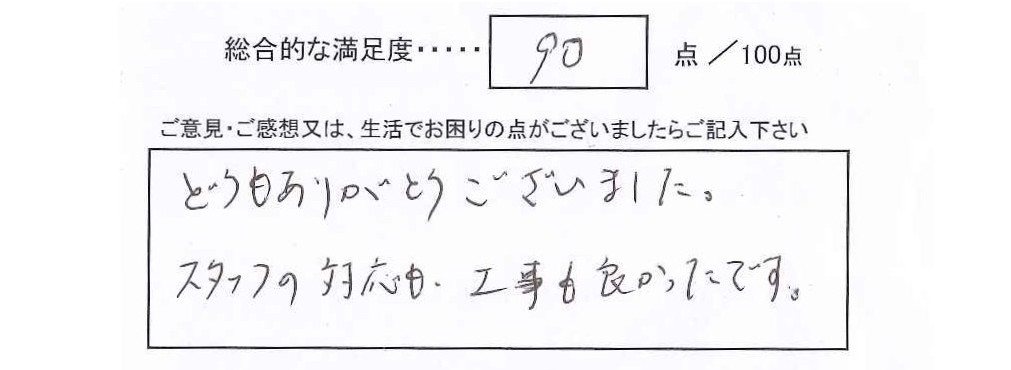 総合的な満足度・・・・・ 90 点 ／100点
ご意見・ご感想又は、生活でお困りの点がございましたらご記入下さい
どうもありがとうございました。
スタッフの対応も、工事も良かったです。